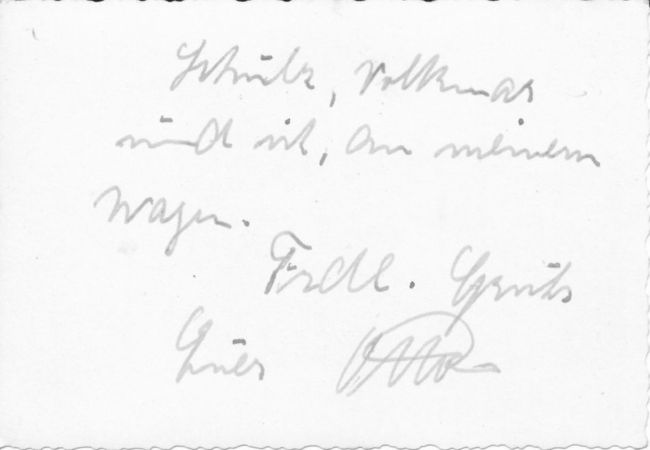 Schulz, Volkmar
und ich, an meinem
Wagen.
Frdl. Gruß
Euer Otto